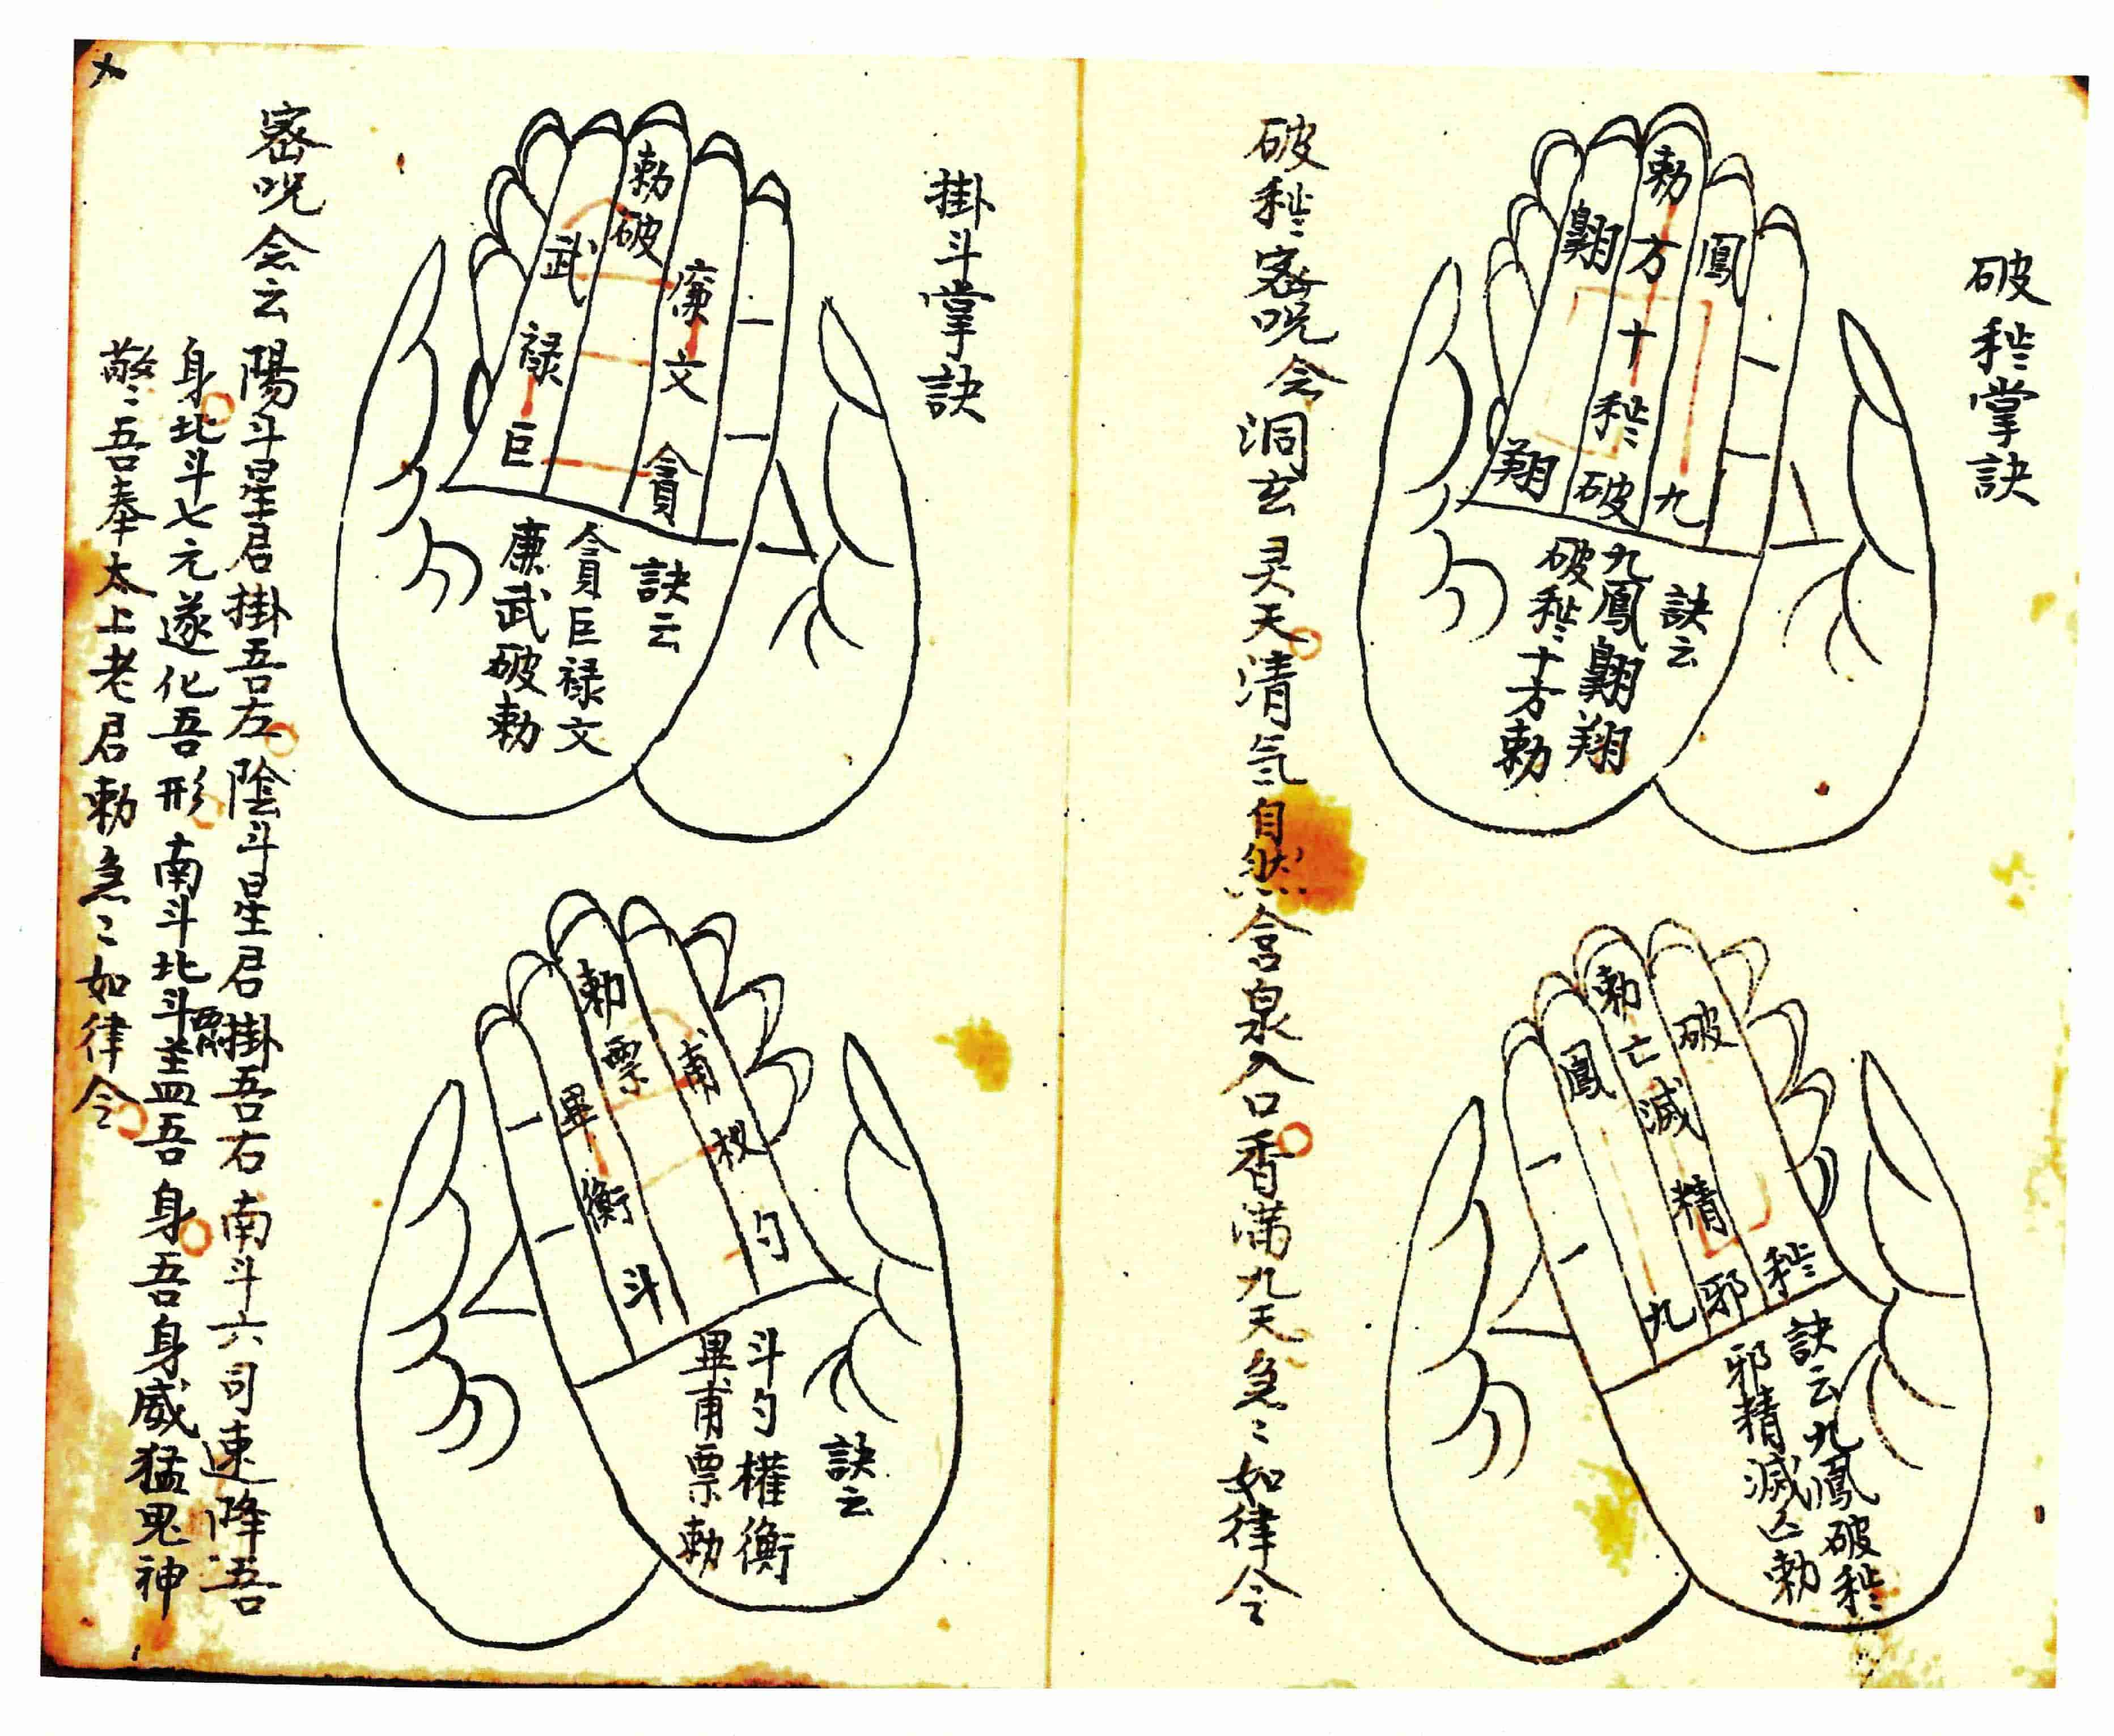 破秽掌訣
勅
鳳
方
翺
十
秽
翔
破
九
訣云
九鳳翺翔
破秽十方勅
勅
破
亡
鳳
滅
精
秽
邪
九
訣云九鳳破秽
邪精滅亡勅
破秽密咒念洞玄灵天清氣自然含泉入口香满九天急〻如律令
掛斗掌訣
勅
破
武
廉
禄
文
巨
貪
訣云
貪巨禄文
廉武破勅
勅
票
甫
畢
权
衡
勺
斗
訣云
斗勺權衡
畢甫票勅
密咒念云陽斗星君掛吾左陰斗星君掛吾右南斗六司速降吾
身北斗七元遂化吾形南斗北斗盖吾身吾身威猛鬼神
吾奉太上老君勅急〻如律令